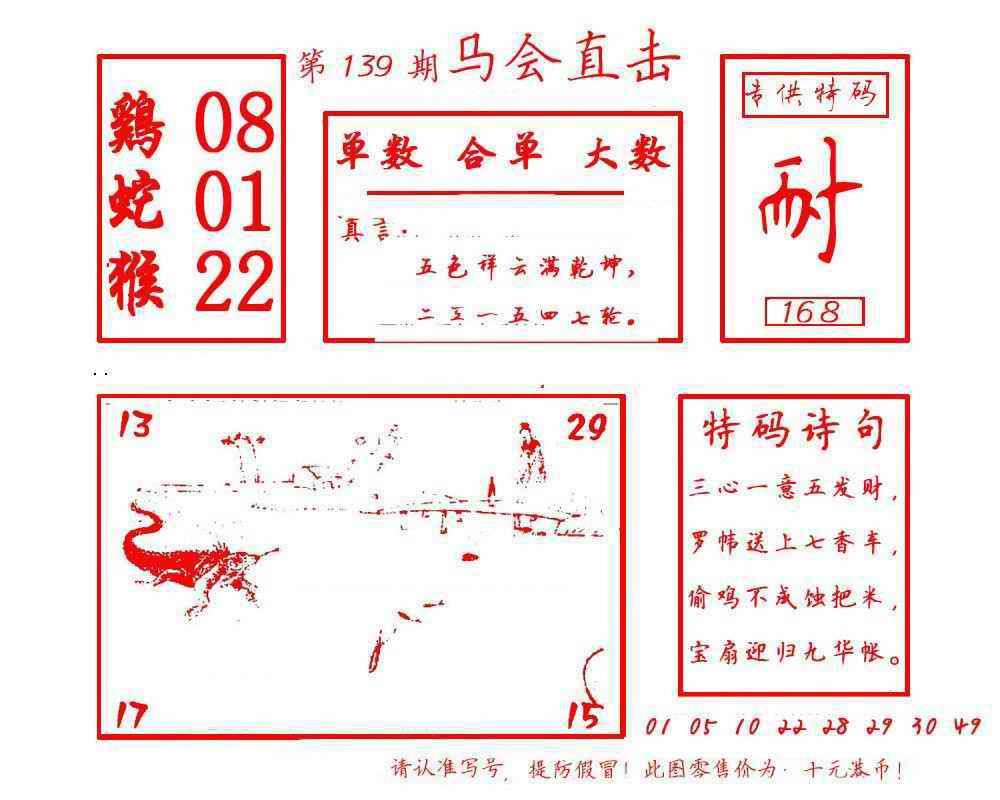 第 139 期 马会直击
鷄 08
蛇 01
猴 22
单数 合单 大数
真言:
五色祥云满乾坤,
二五一五四七轮。
专供特码
耐
168
13
29
17
15
特码诗句
三心一意五发财,
罗帏送上七香车,
偷鸡不成蚀把米,
宝扇迎归九华帐。
01 05 10 22 28 29 30 49
请认准写号,提防假冒!此图零售价为:十元港币!